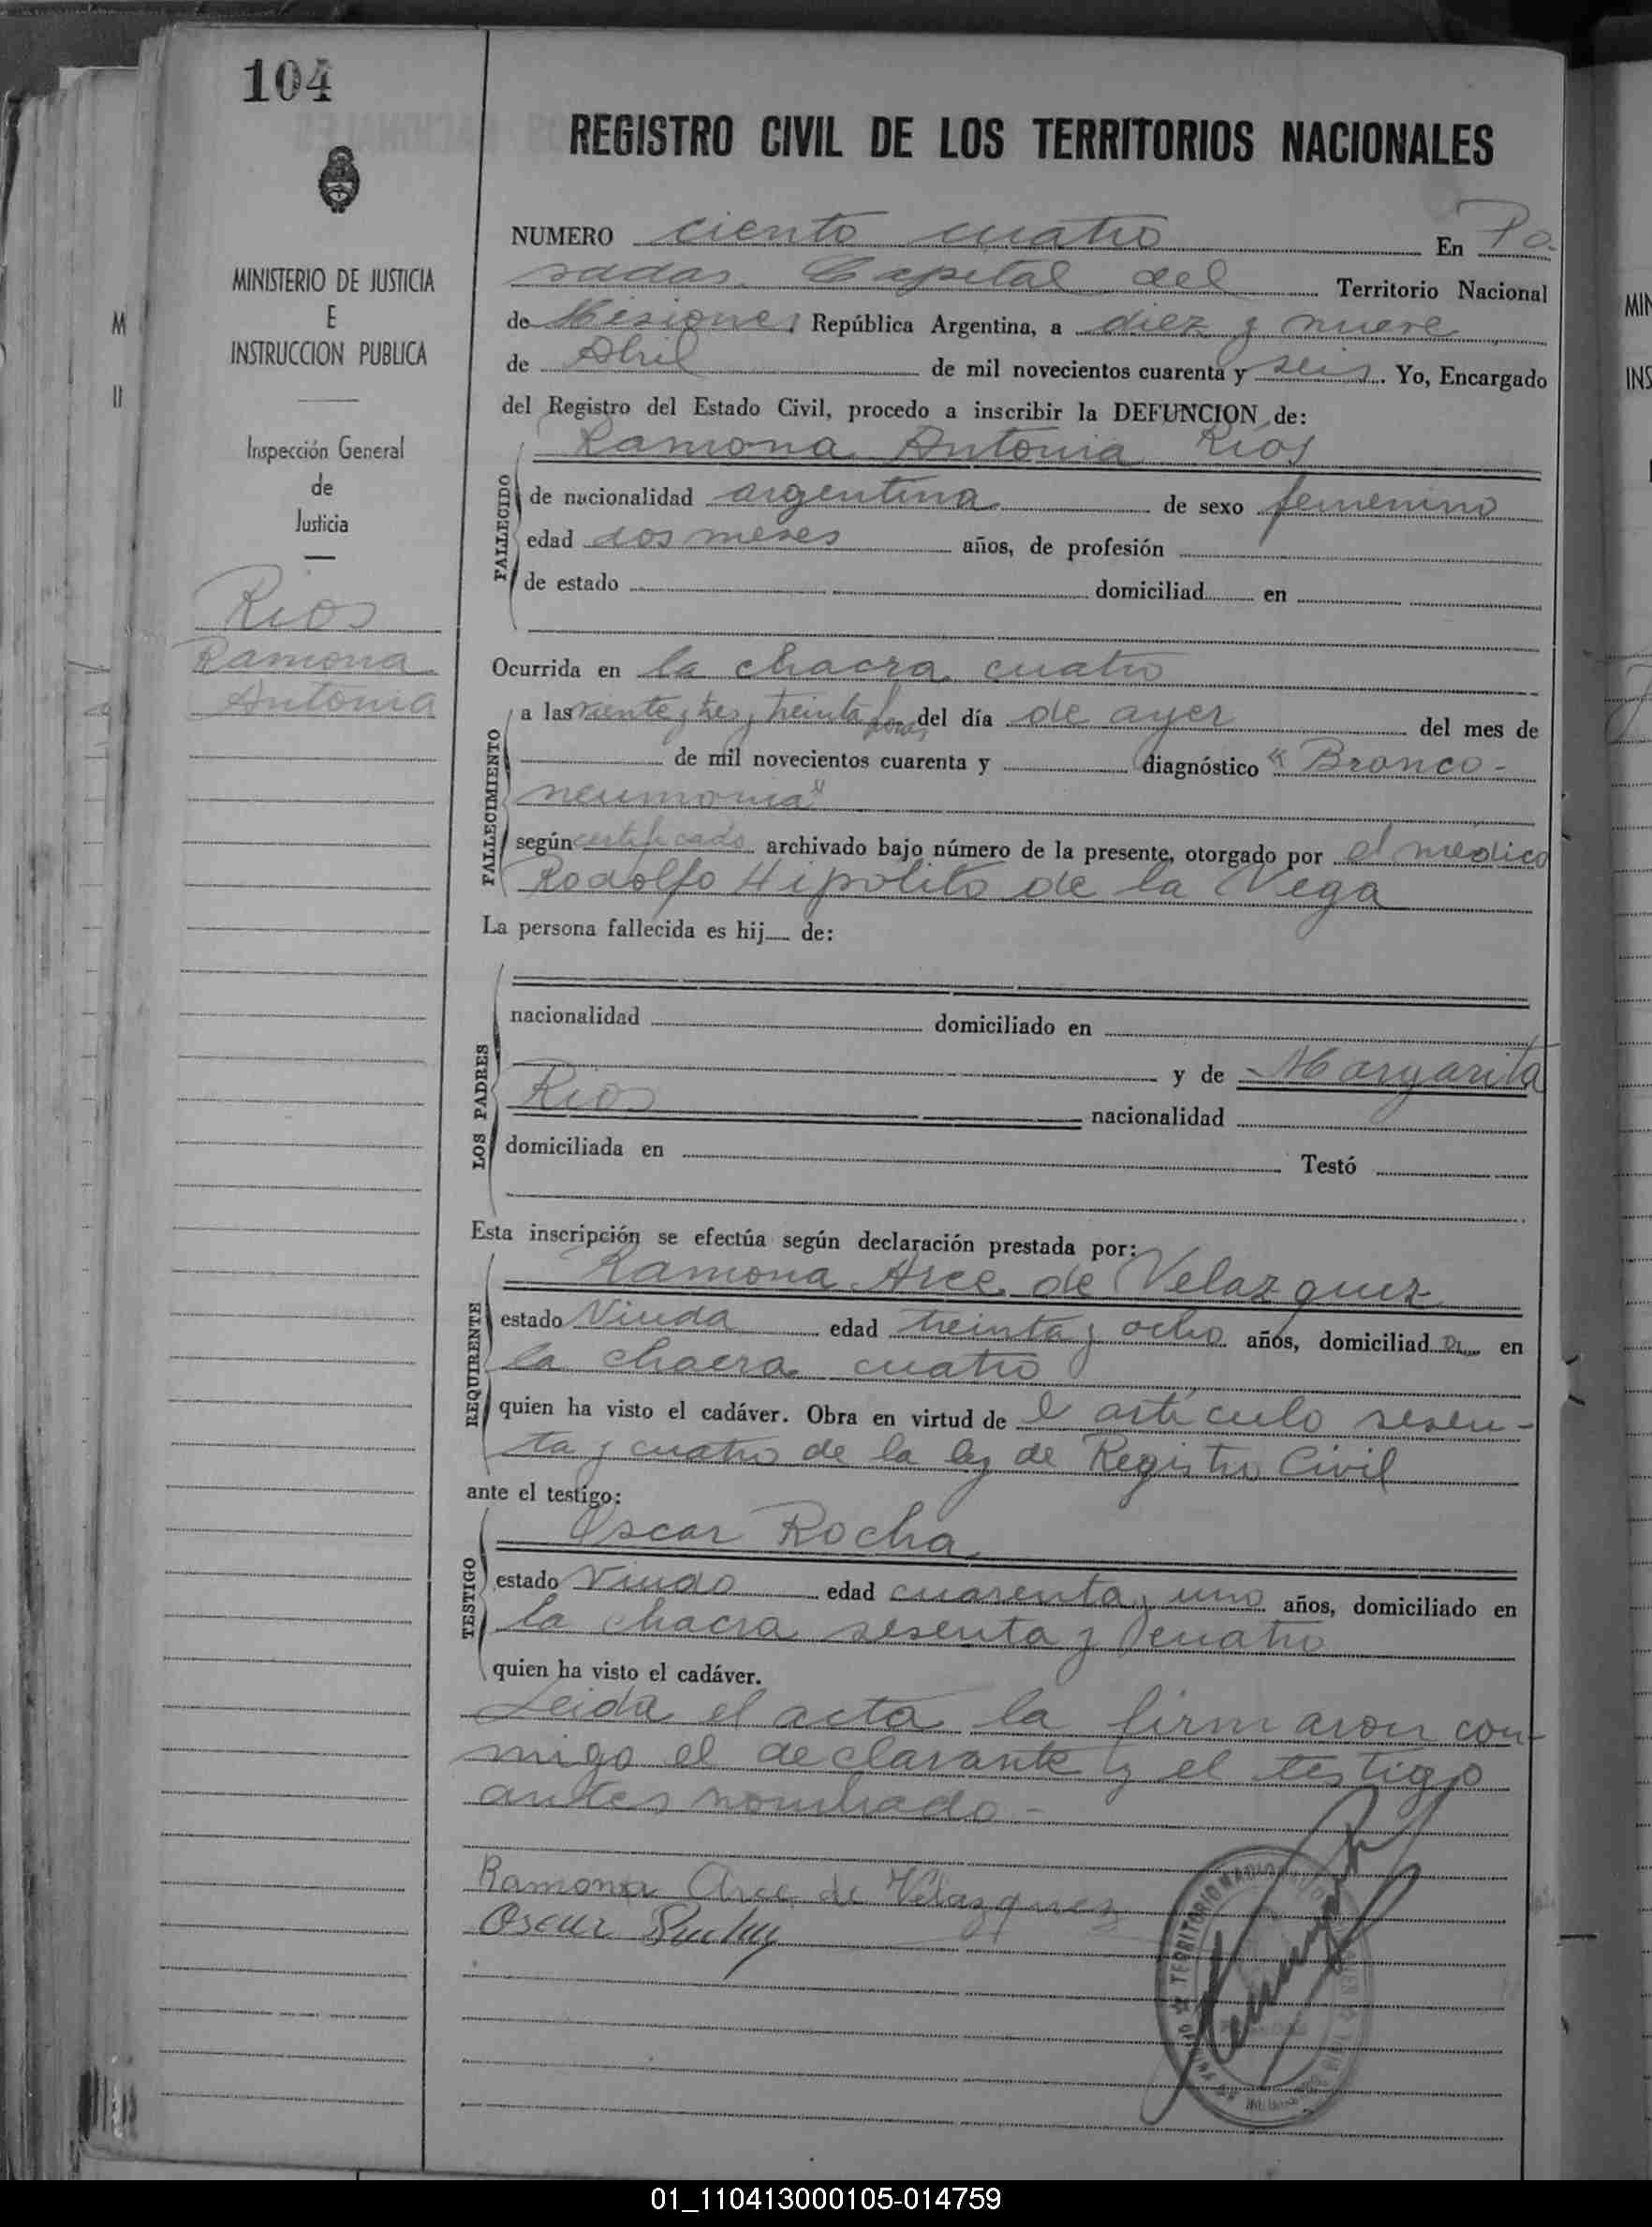 104
REGISTRO CIVIL DE LOS TERRITORIOS NACIONALES
MINISTERIO DE JUSTICIA
E
INSTRUCCION PUBLICA
Inspección General
de
Justicia
Rios
Ramona
Antonia
NUMERO ciento cuatro En Po-
sadas Capital del Territorio Nacional
de Misiones, República Argentina, a diez y nueve
de Abril de mil novecientos cuarenta y seis. Yo, Encargado
del Registro del Estado Civil, procedo a inscribir la DEFUNCION de:
Ramona Antonia Rios
FALLECIDO
de nacionalidad argentina de sexo femenino
edad dos meses años, de profesión
de estado domiciliad en
Ocurrida en la chacra cuatro
FALLECIMIENTO
a las veinte y tres y treinta horas del día de ayer del mes de
de mil novecientos cuarenta y diagnóstico "Bronco-
neumonia"
según certificado archivado bajo número de la presente, otorgado por el médico
Rodolfo Hipolito de la Vega
La persona fallecida es hij de:
LOS PADRES
nacionalidad domiciliado en
y de Margarita
Rios nacionalidad
domiciliada en Testó
Esta inscripción se efectúa según declaración prestada por:
Ramona Arce de Velazquez
REQUIRENTE
estado Viuda edad treinta y ocho años, domiciliad a en
la chacra cuatro
quien ha visto el cadáver. Obra en virtud de l artículo sesen-
ta y cuatro de la ley de Registro Civil
ante el testigo:
Oscar Rocha
TESTIGO
estado Viudo edad cuarenta y uno años, domiciliado en
la chacra sesenta y cuatro
quien ha visto el cadáver.
Leida el acta la firmaron con-
migo el declarante y el testigo
antes nombrado-
Ramona Arce de Velazquez
Oscar
TERRITORIO
01_110413000105-014759